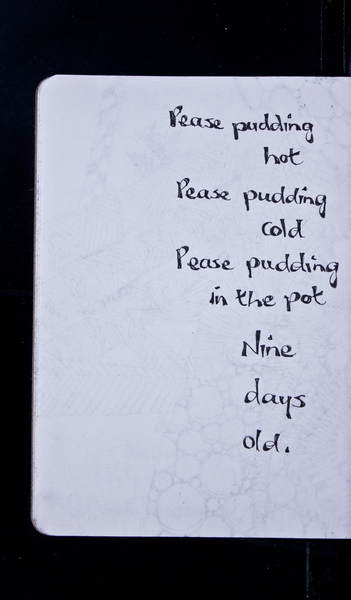 Pease pudding
hot
Pease pudding
cold
Pease pudding
in the pot
Nine
days
old.